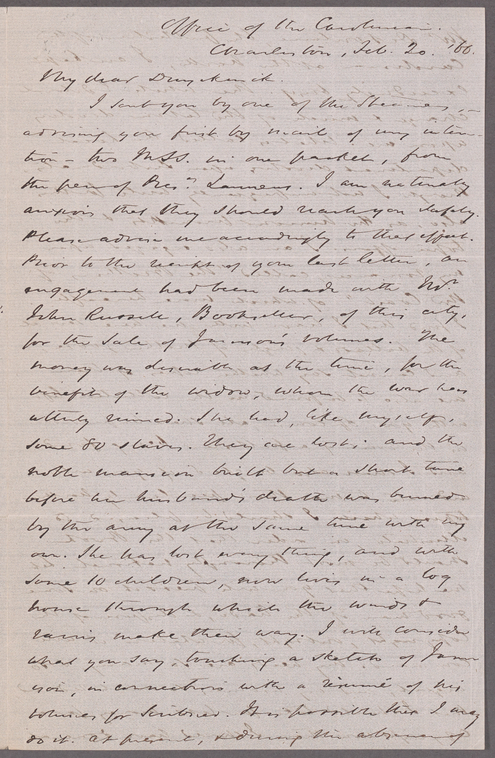 Office of the Carolinian.
Charleston, Feb. 20. '66.
My dear Duyckinck.
I sent you by one of the Steamers,—
advising you first by mail of my inten-
tion—two MSS. in one packet, from
the pen of Presn. Laurens. I am naturally
anxious that they should reach you safely.
Please advise me accordingly to that effect.
Prior to the receipt of your last letter, an
engagement had been made with Mr.
John Russell, Bookseller, of this city,
for the sale of Jamison's volumes. The
money was desirable at the time, for the
benefit of the widow, whom the war has
utterly ruined. She had, like myself,
some 80 slaves. They are lost; and the
noble mansion built but a short time
before her husband's death was burned
by the army at the same time with my
own. She has lost every thing, and with
some 10 children, now lives in a log
house through which the winds &
rains make their way. I will consider
what you say touching a sketch of Jami
son, in connection with a résumé of his
volumes for Scribner. It is possible that I may
do it. At present, & during the absence of